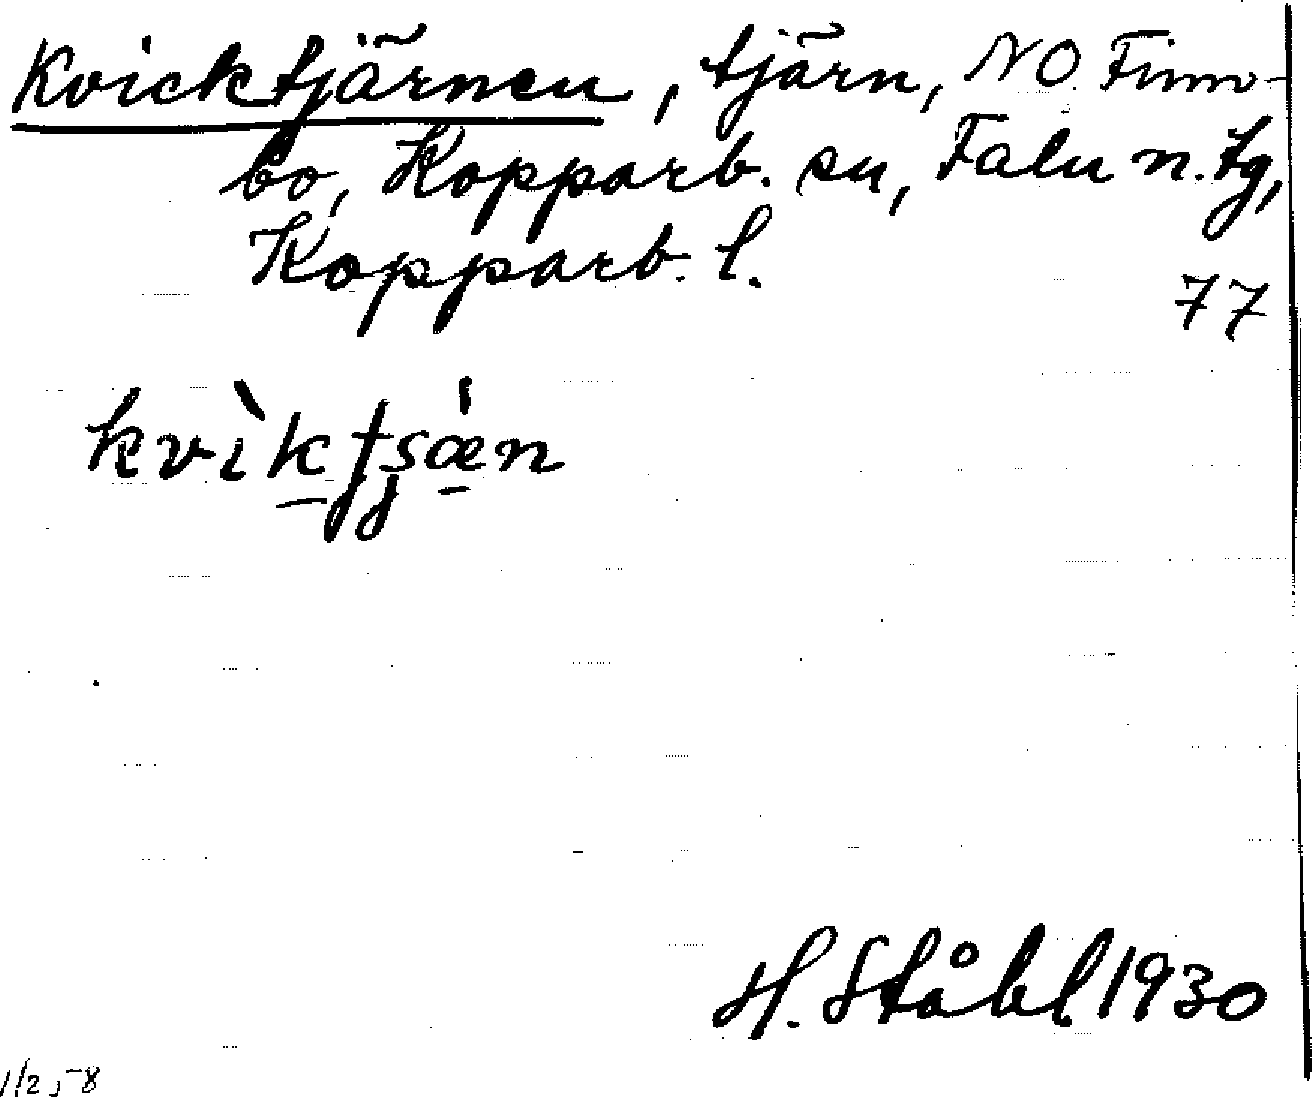 Kvicktjärnen, tjärn, NO Finn-
bo, Kopparb. sn, Falu n. tg,
Kopparb. l.
77
H. Ståhl 1930